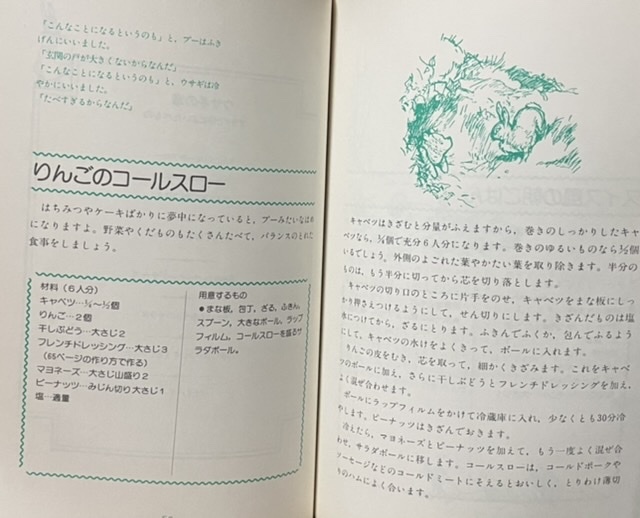 「こんなことになるというのも」と、プーはふき
げんにいいました。
「玄関の戸が大きくないからなんだ」
「こんなことになるというのも」と、ウサギは冷
やかにいいました。
「たべすぎるからなんだ」
りんごのコールスロー
はちみつやケーキばかりに夢中になっていると、プーみたいなはめ
になりますよ。野菜やくだものもたくさんたべて、バランスのとれた
食事をしましょう。
材料(6人分)
キャベツ…¼〜½個
りんご…2個
干しぶどう…大さじ2
フレンチドレッシング…大さじ3
(65ページの作り方で作る)
マヨネーズ…大さじ山盛り2
ピーナッツ…みじん切り大さじ1
塩…適量
用意するもの
●まな板、包丁、ざる、ふきん、
スプーン、大きなボール、ラップ
フィルム、コールスローを盛るサ
ラダボール。
キャベツはきざむと分量がふえますから、巻きのしっかりしたキャ
ベツなら、¼個で充分6人分になります。巻きのゆるいものなら½個
いるでしょう。外側のよごれた葉やかたい葉を取り除きます。半分の
ものは、もう半分に切ってから芯を切り落とします。
キャベツの切り口のところに片手をのせ、キャベツをまな板にしっ
かり押さえつけるようにして、せん切りにします。きざんだものは塩
水につけてから、ざるにとります。ふきんでふくか、包んでふるよう
にして、キャベツの水けをよくきって、ボールに入れます。
りんごの皮をむき、芯を取って、細かくきざみます。これをキャベ
ツのボールに加え、さらに干しぶどうとフレンチドレッシングを加え、
よく混ぜ合わせます。
ボールにラップフィルムをかけて冷蔵庫に入れ、少なくとも30分冷
やします。ピーナッツはきざんでおきます。
冷えたら、マヨネーズとピーナッツを加えて、もう一度よく混ぜ合
わせ、サラダボールに移します。コールスローは、コールドポークや
ソーセージなどのコールドミートにそえるとおいしく、とりわけ薄切
りのハムによく合います。